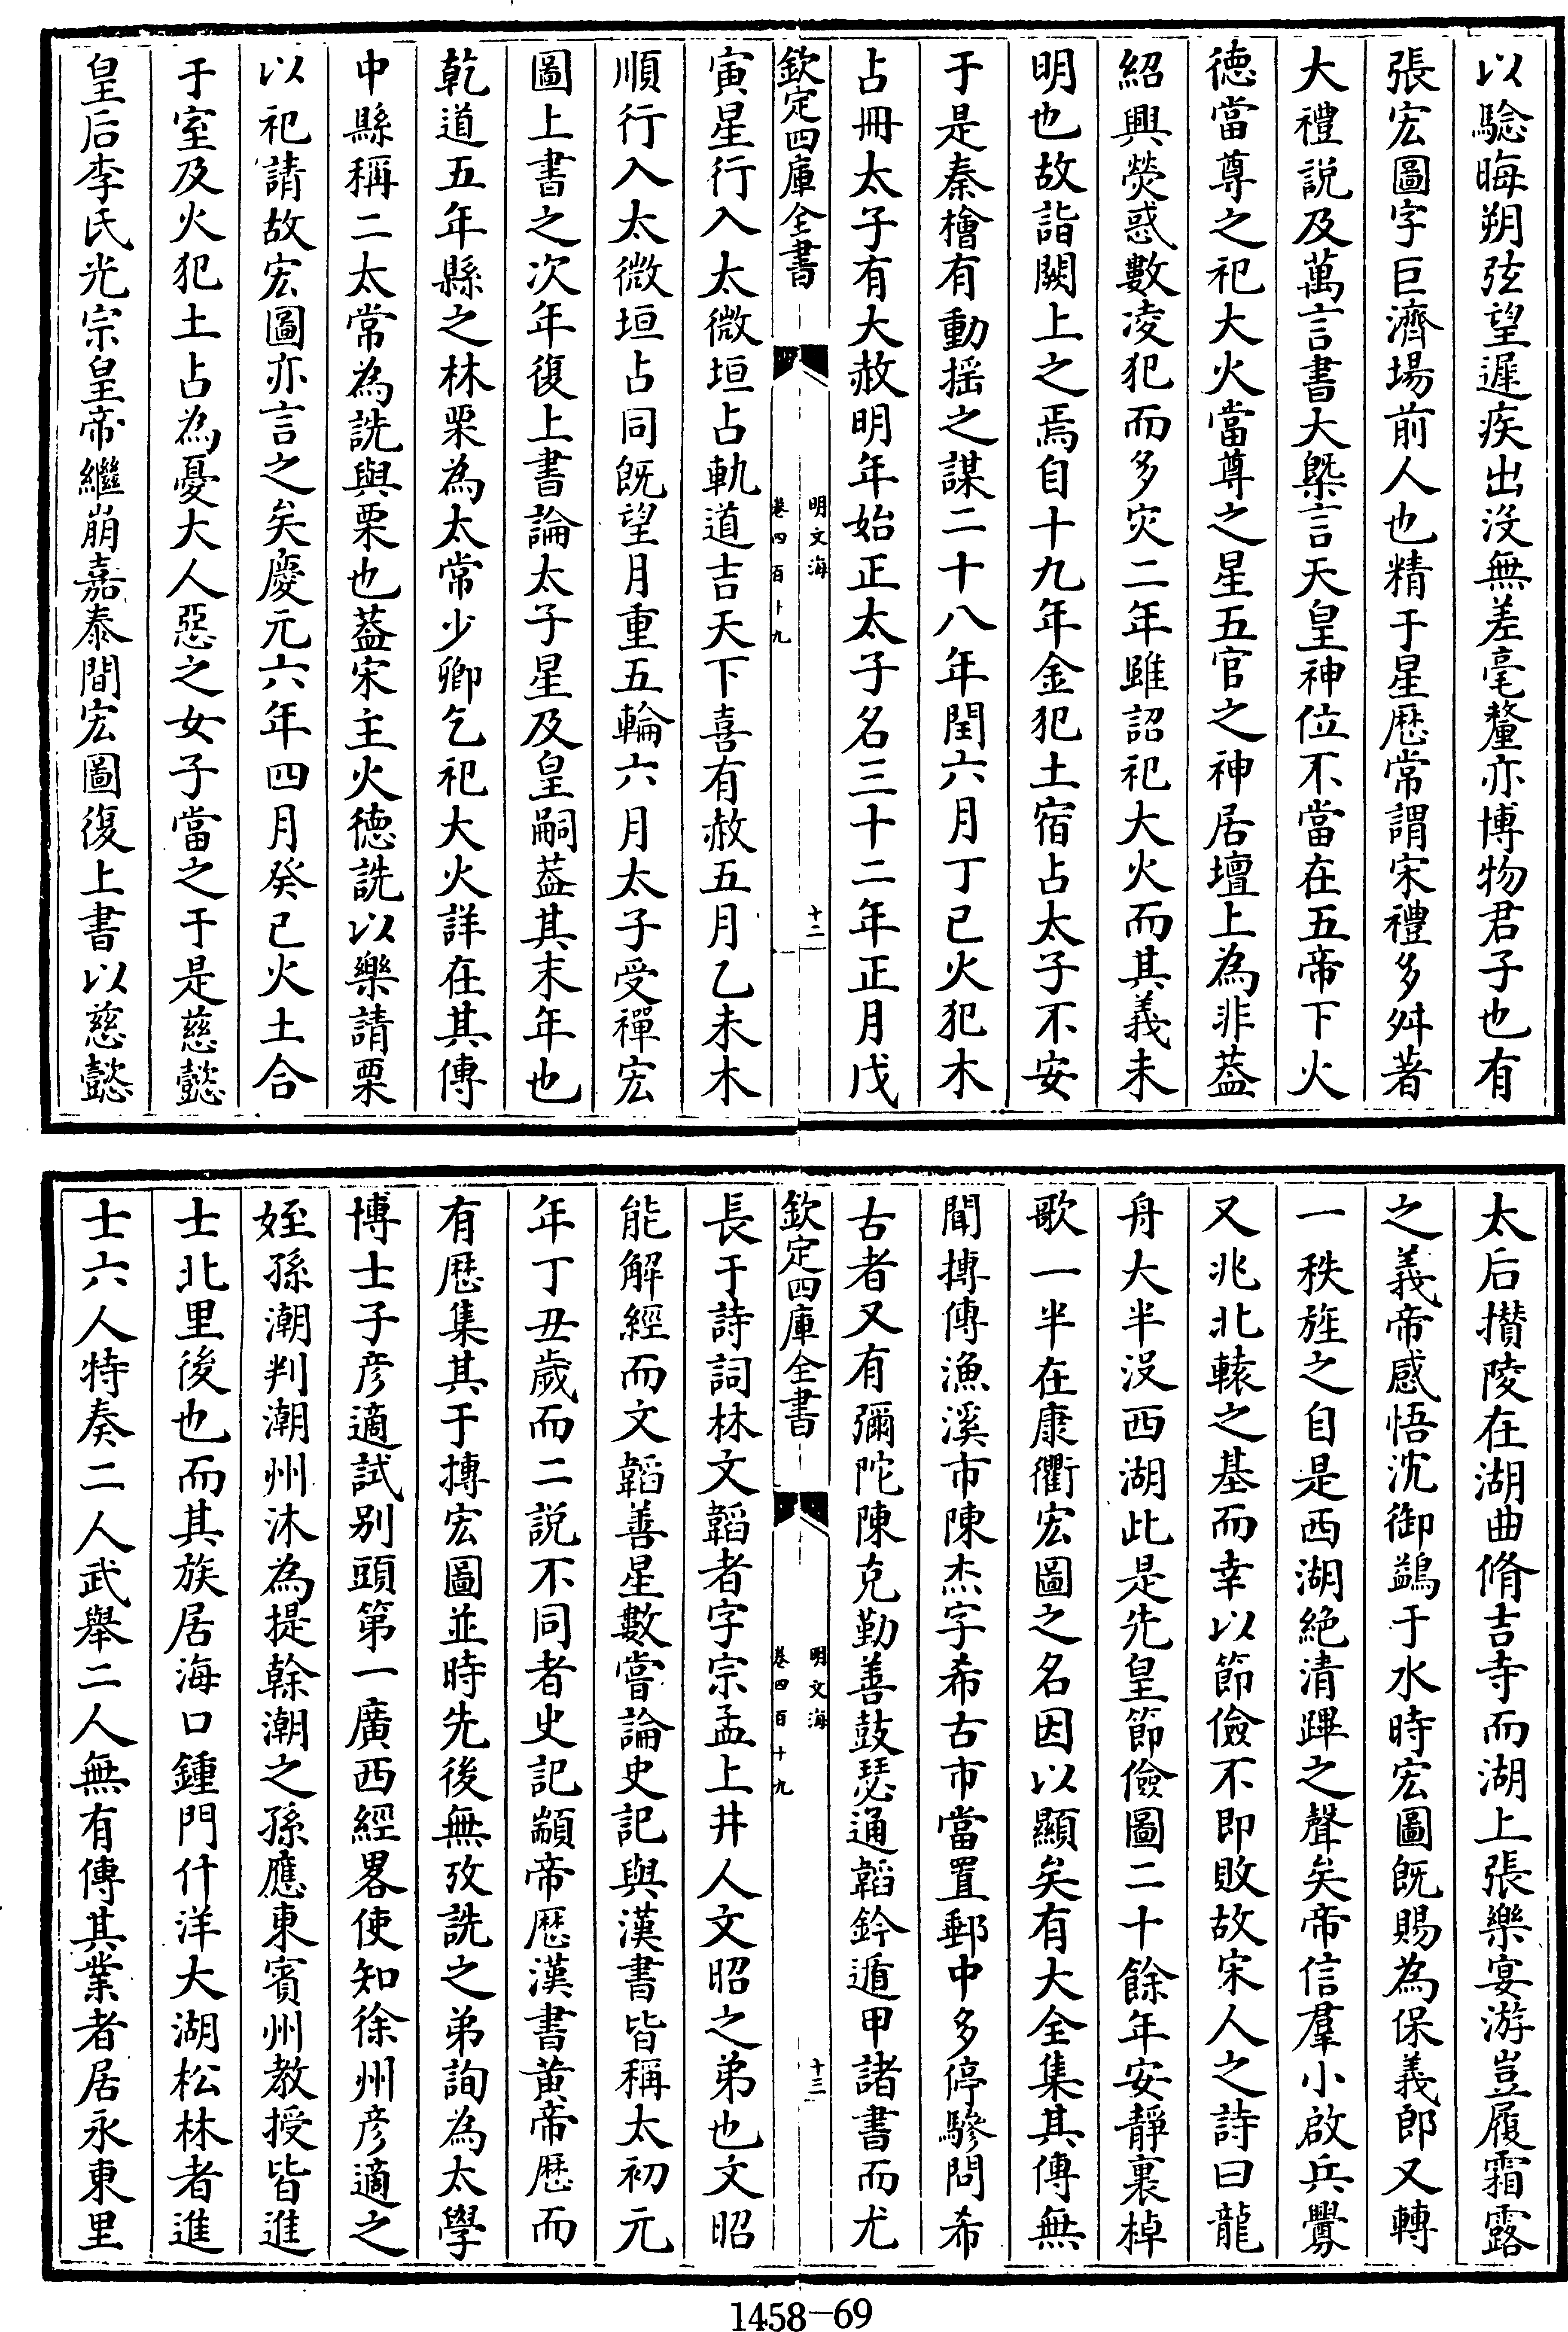 以騐晦朔弦望遲疾出沒無差毫釐亦博物君子也有
張宏圖字巨濟場前人也精于星歴常謂宋禮多舛著
大禮說及萬言書大槩言天皇神位不當在五帝下火
徳當尊之祀大火當尊之星五官之神居壇上為非葢
紹興熒惑數凌犯而多灾二年雖詔祀大火而其義未
明也故詣闕上之焉自十九年金犯土宿占太子不安
于是秦檜有動揺之謀二十八年閏六月丁已火犯木
占冊太子有大赦明年始正太子名三十二年正月戊
欽定四庫全書
明文海
卷四百十九
十二
寅星行入太微垣占軌道吉天下喜有赦五月乙未木
順行入太微垣占同既望月重五輪六月太子受禪宏
圖上書之次年復上書論太子星及皇嗣葢其末年也
乾道五年縣之林栗為太常少卿乞祀大火詳在其傳
中縣稱二太常為詵與栗也葢宋主火徳詵以樂請栗
以祀請故宏圖亦言之矣慶元六年四月癸已火土合
于室及火犯土占為憂大人惡之女子當之于是慈懿
皇后李氏光宗皇帝繼崩嘉泰間宏圖復上書以慈懿
太后攅陵在湖曲脩吉寺而湖上張樂宴游豈履霜露
之義帝感悟沈御鷁于水時宏圖既賜為保義郎又轉
一秩旌之自是西湖絶清蹕之聲矣帝信羣小啟兵釁
又兆北轅之基而幸以節儉不即敗故宋人之詩曰龍
舟大半沒西湖此是先皇節儉圖二十餘年安靜裏棹
歌一半在康衢宏圖之名因以顯矣有大全集其傳無
聞摶傳漁溪市陳杰字希古市當置郵中多停驂問希
古者又有彌陀陳克勤善鼓瑟通韜鈐遁甲諸書而尤
欽定四庫全書
明文海
卷四百十九
十三
長于詩詞林文韜者字宗孟上井人文昭之弟也文昭
能解經而文韜善星數嘗論史記與漢書皆稱太初元
年丁丑歲而二說不同者史記顓帝歴漢書黄帝歴而
有歴集其于摶宏圖並時先後無攷詵之弟詢為太學
博士子彦適試别頭第一廣西經畧使知徐州彦適之
姪孫潮判潮州沐為提幹潮之孫應東賓州教授皆進
士北里後也而其族居海口鍾門什洋大湖松林者進
士六人特奏二人武舉二人無有傳其業者居永東里
1458—69